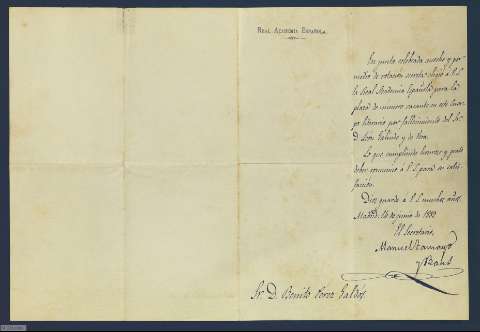 REAL ACADEMIA ESPAÑOLA.
En junta celebrada anoche y por
medio de votación secreta eligió á V.S.
la Real Academia Española para la
plaza de número vacante en este Cuer-
po literario por fallecimiento del Sr.
D. León Galindo y de Vera.
Lo que cumpliendo honroso y grato
deber comunico á V.S. para su satis-
facción.
Dios guarde á V.S. muchos años.
Madrid, 14 de junio de 1889.
El Secretario,
Manuel Tamayo
y Baus
Sr. D. Benito Perez Galdós.